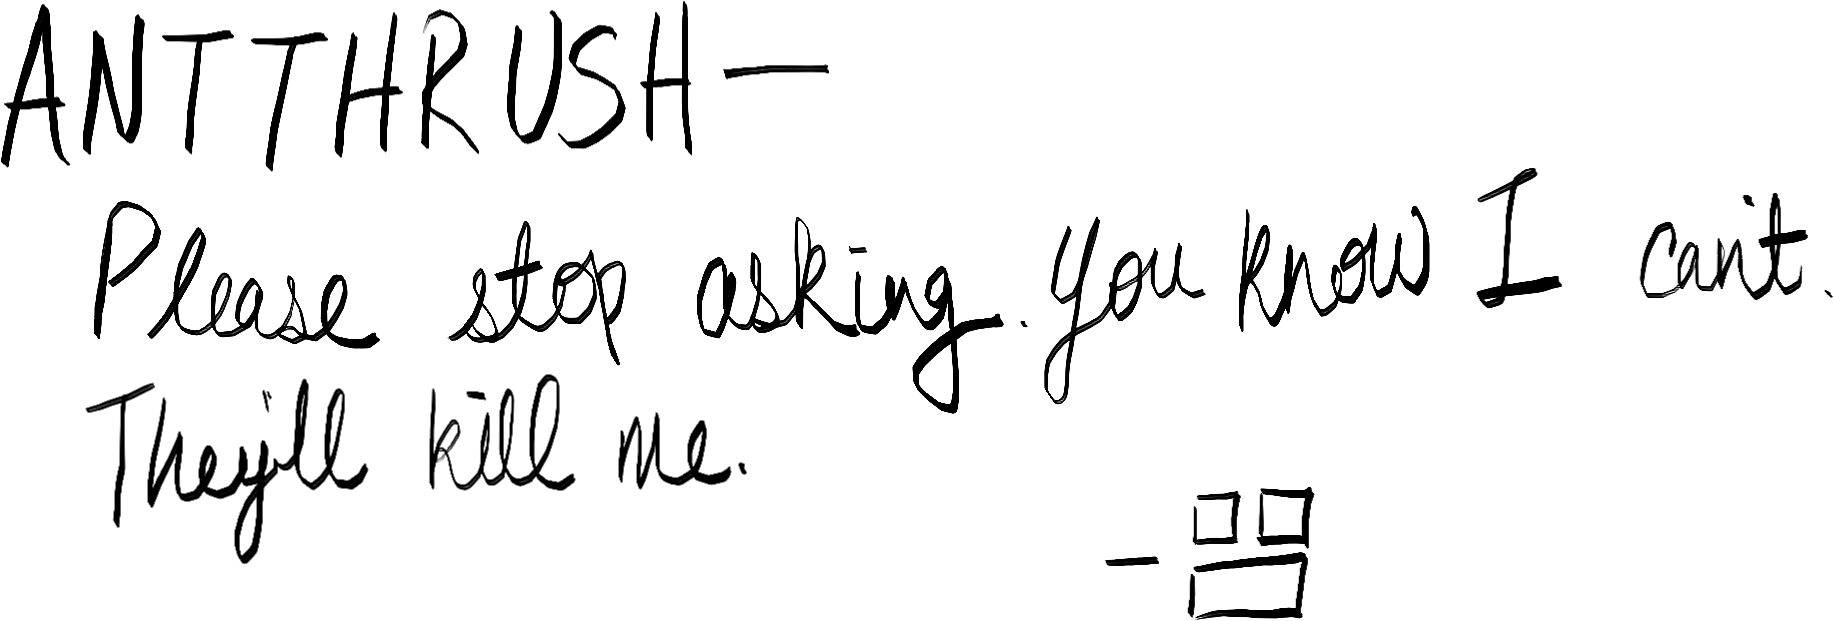 ANTTHRUSH—
Please stop asking. You know I can't.
They'll kill me.
-